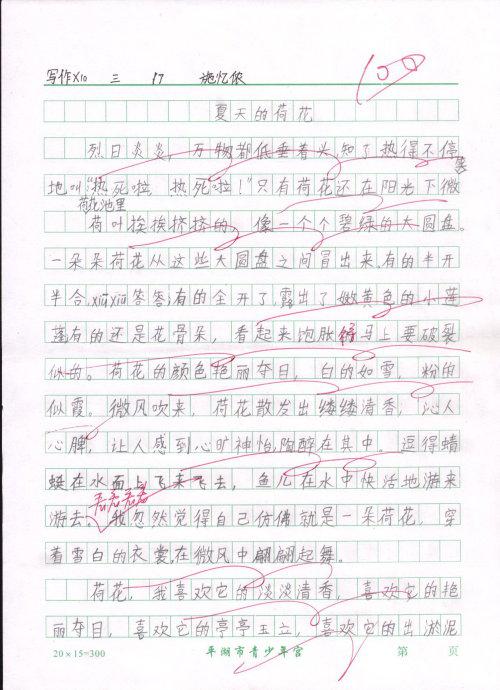 写作X10 三 17 施忆依
100
夏天的荷花
烈日炎炎，万物都低垂着头，知了热得不停
地叫“热死啦，热死啦！”只有荷花还在阳光下微笑
荷花池里
荷叶挨挨挤挤的，像一个个碧绿的大圆盘。
一朵朵荷花从这些大圆盘之间冒出来，有的半开
半合，xiūxiū答答；有的全开了，露出了嫩黄色的小莲
蓬有的还是花骨朵，看起来饱胀得马上要破裂
似的。荷花的颜色艳丽夺目，白的如雪，粉的
似霞。微风吹来，荷花散发出缕缕清香，沁人
心脾，让人感到心旷神怡，陶醉在其中。逗得蜻
蜓在水面上飞来飞去，鱼儿在水中快活地游来
游去。看看看看我忽然觉得自己仿佛就是一朵荷花，穿
着雪白的衣裳，在微风中翩翩起舞。
荷花，我喜欢它的淡淡清香，喜欢它的艳
丽夺目，喜欢它的亭亭玉立，喜欢它的出淤泥
20×15=300 平湖市青少年宫 第 页